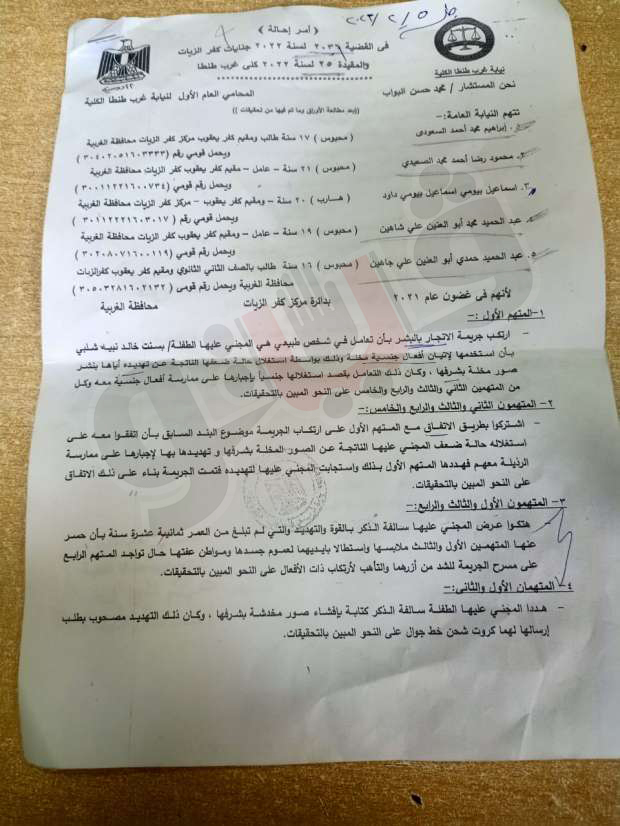 جلسة ٥/٢/٢٠٢٢
﴿ أمر إحالة ﴾
فى القضية ٢٠٣٢ لسنة ٢٠٢٢ جنايات كفر الزيات
والمقيدة ٢٥ لسنة ٢٠٢٢ كلى غرب طنطا
نيابة غرب طنطا الكلية
نحن المستشار / محمد حسن البواب المحامي العام الأول لنيابة غرب طنطا الكلية
((بعد مطالعة الأوراق وما تم فيها من تحقيقات ))
نتهم النيابة العامة:-
١. إبراهيم محمد أحمد السعودى ( محبوس ) ١٧ سنة طالب ومقيم كفر يعقوب مركز كفر الزيات محافظة الغربية
ويحمل قومي رقم ( ٣٠٤٠٢٠٥١٦٠٣٣٣٣ )
٢. محمود رضا أحمد محمد الصعيدي ( محبوس ) ٢١ سنة – عامل – مقيم كفر يعقوب مركز كفر الزيات محافظة الغربية
ويحمل قومي رقم ( ٣٠٠١١٢٢١٦٠٠٧٣٤ )
٣. اسماعيل بيومي اسماعيل بيومي داود ( هارب ) ٢٠ سنة – ومقيم كفر يعقوب – مركز كفر الزيات محافظة الغربية
ويحمل قومي رقم ( ٣٠١١٢٢٢١٦٠٣٠١٧ )
٤. عبد الحميد محمد أبو العنين علي شاهين ( محبوس ) ١٩ سنة – عامل – ومقيم كفر يعقوب كفر الزيات محافظة الغربية
ويحمل قومي رقم ( ٣٠٢٠٨٠٧١٦٠٠١١٩ )
٥. عبد الحميد حمدي أبو العنين علي ( محبوس ) ١٦ سنة طالب بالصف الثاني الثانوي ومقيم كفر يعقوب كفرالزيات
محافظة الغربية ويحمل قومي رقم ( ٣٠٥٠٣٢٨١٦٠٢١٣٢ )
لأنهم فى غضون عام ٢٠٢١ بدائرة مركز كفر الزيات محافظة الغربية
١-المتهم الأول :-
- ارتكب جريمة الاتجار بالبشر بأن تعامل في شخص طبيعي هي المجني عليها الطفلة/ بسنت خالد نبيه شلبي
بأن استخدمها لإتيان أفعال جنسية مخلة وذلك بواسطة استغلال حالة ضعفها الناتجة عن تهديده أياها بنشر
صور مخلة بشرفها ، وكان ذلك التعامل بقصد استغلالها جنسياً بإجبارها على ممارسة أفعال جنسية معه وكل
من المتهمين الثاني والثالث والرابع والخامس على النحو المبين بالتحقيقات.
٢- المتهمون الثاني والثالث والرابع والخامس:-
- اشتركوا بطريق الاتفاق مع المتهم الأول على ارتكاب الجريمة موضوع البند السابق بأن اتفقوا معه على
استغلاله حالة ضعف المجني عليها الناتجة عن الصور المخلة بشرفها و تهديدها بها لإجبارها على ممارسة
الرذيلة معهم فهددها المتهم الأول بذلك واستجابت المجني عليها لتهديده فتمت الجريمة بناء على ذلك الاتفاق
على النحو المبين بالتحقيقات.
٣- المتهمون الأول والثالث والرابع:-
- هتكوا عرض المجني عليها سالفة الذكر بالقوة والتهديد والتي لم تبلغ من العمر ثمانية عشرة سنة بأن حسر
عنها المتهمين الأول والثالث ملابسها واستطالا بايديهما لعموم جسدها ومواطن عفتها حال تواجد المتهم الرابع
على مسرح الجريمة للشد من أزرهما والتأهب لأرتكاب ذات الأفعال على النحو المبين بالتحقيقات.
٤- المتهمان الأول والثانى:-
- هددا المجني عليها الطفلة سالفة الذكر كتابة بإفشاء صور مخدشة بشرفها ، وكان ذلك التهديد مصحوب بطلب
إرسالها لهما كروت شحن خط جوال على النحو المبين بالتحقيقات.
١